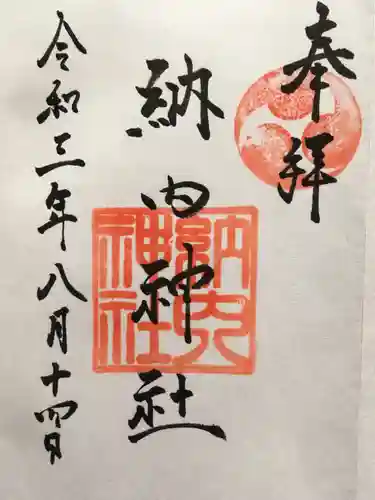 奉拝
納内神社
令和三年八月十四日
納内
神社